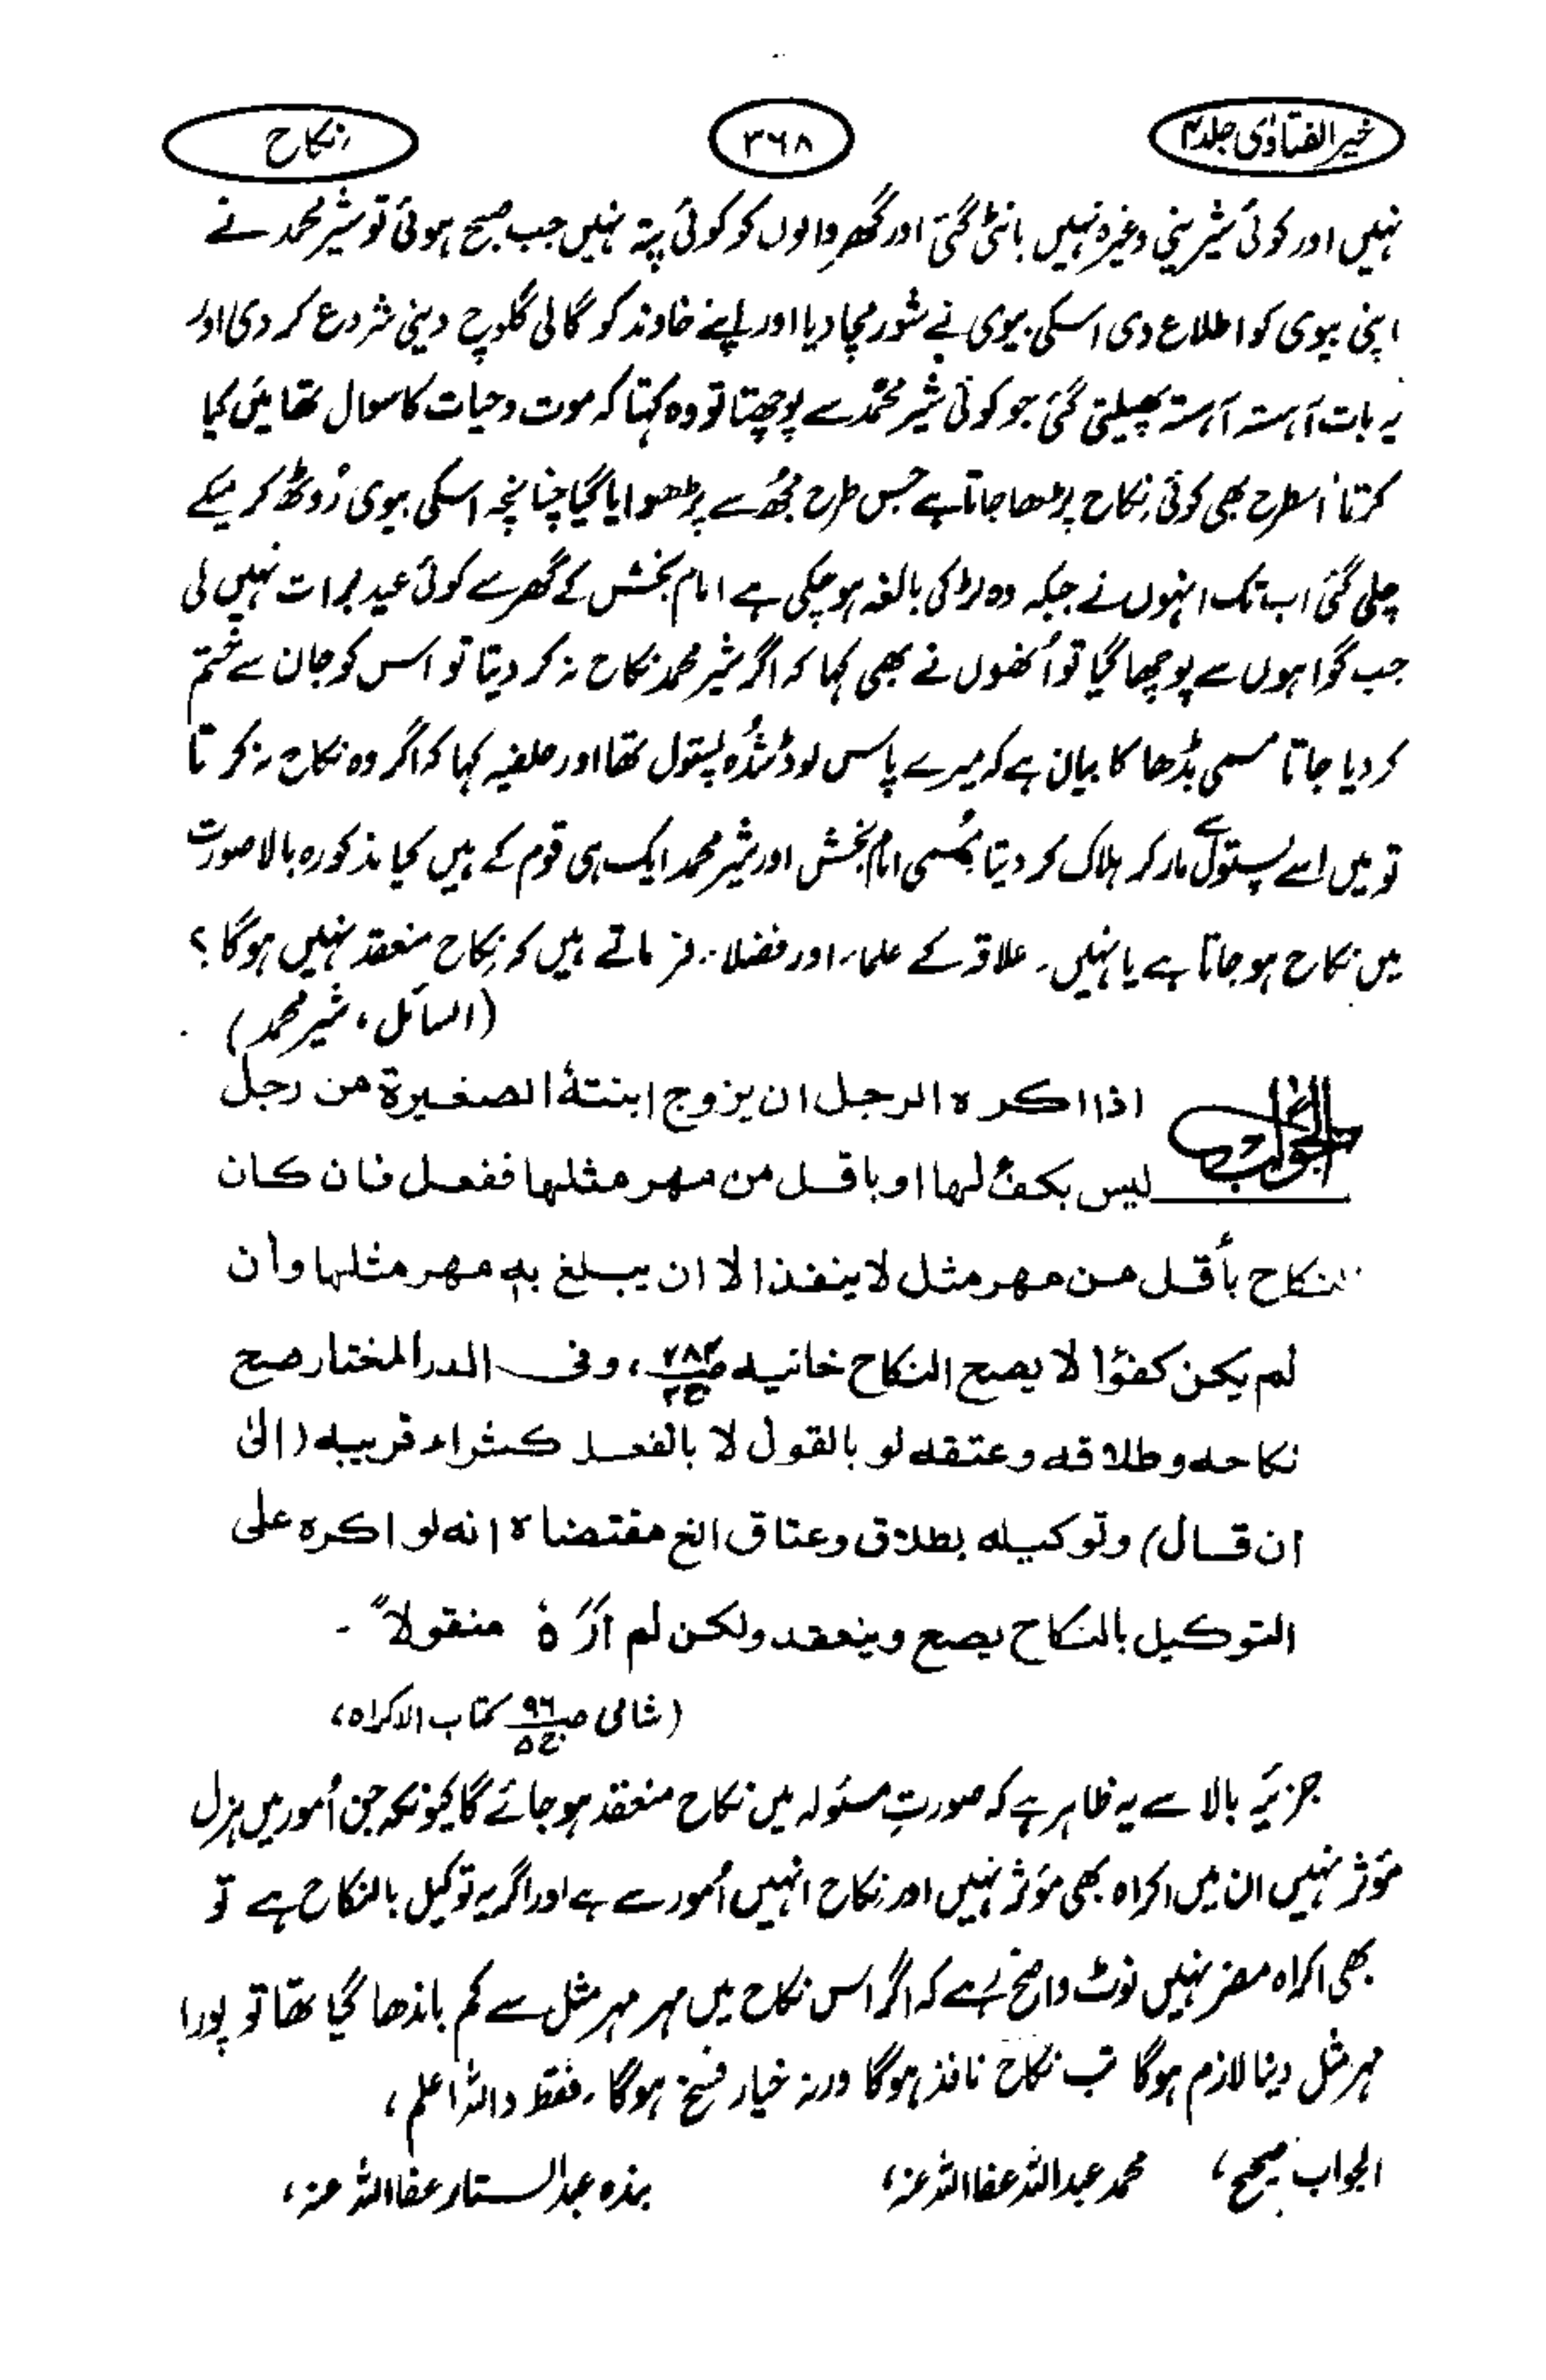 خیر الفتاویٰ جلد ۴
۳۶۸
نکاح
نہیں اور کوئی شیرینی وغیرہ نہیں بانٹی گئی اور گھر والوں کو کوئی پتہ نہیں جب صبح ہوئی تو شیر محمد نے
اپنی بیوی کو اطلاع دی اسکی بیوی نے شور مچا دیا اور اپنے خاوند کو گالی گلوچ دینی شروع کر دی اور
یہ بات آہستہ آہستہ پھیلتی گئی جو کوئی شیر محمد سے پوچھتا تو وہ کہتا کہ موت و حیات کا سوال تھا میں کیا
کرتا اسطرح بھی کوئی نکاح پڑھا جاتا ہے جس طرح مجھ سے پڑھوایا گیا چنانچہ اسکی بیوی رُوٹھ کر میکے
چلی گئی اب تک انہوں نے جبکہ وہ لڑکی بالغہ ہو چکی ہے امام بخش کے گھر سے کوئی عید برات نہیں لی
جب گواہوں سے پوچھا گیا تو اُنھوں نے بھی کہا کہ اگر شیر محمد نکاح نہ کر دیتا تو اس کو جان سے ختم
کر دیا جاتا مسمی بڈھا کا بیان ہے کہ میرے پاس لوڈ شُدہ پستول تھا اور حلفیہ کہا کہ اگر وہ نکاح نہ کرتا
تو میں اسے پستول سے مار کر ہلاک کر دیتا مُسمی امام بخش اور شیر محمد ایک ہی قوم کے ہیں کیا مذکورہ بالا صورت
میں نکاح ہو جاتا ہے یا نہیں۔ علاقہ کے علماء اور فضلاء فرماتے ہیں کہ نکاح منعقد نہیں ہوگا ؟
(السائل، شیر محمد)
الجواب
اذا اکرہ الرجل ان یزوج ابنتہٗ الصغیرۃ من رجل
لیس بکفٔ لہا او باقل من مہر مثلہا ففعل فان کان
النکاح بأقل من مہر مثل لا ینفذ الا ان یبلغ بہٖ مہر مثلہا وأن
لم یکن کفوًا لا یصح النکاح خانیہ ص۴۸۲ ج۲، وفی الدر المختار صح
نکاحہ وطلاقہ وعتقہ لو بالقول لا بالفعل کشراء قریبہ (الیٰ
ان قال) وتوکیلہ بطلاق وعتاق الخ مقتضاہ انہ لو اکرہ علی
التوکیل بالنکاح یصح وینعقد ولکن لم اَرَہٗ منقولاً ۔
(شامی ص۹۶ ج۵ کتاب الاکراہ،
جزئیہ بالا سے یہ ظاہر ہے کہ صورتِ مسئولہ میں نکاح منعقد ہو جائے گا کیونکہ جن اُمور میں ہزل
مؤثر نہیں ان میں اکراہ بھی مؤثر نہیں اور نکاح انہیں اُمور سے ہے اور اگر یہ توکیل بالنکاح ہے تو
بھی اکراہ مضر نہیں نوٹ واضح رہے کہ اگر اس نکاح میں مہر مہر مثل سے کم باندھا گیا تھا تو پورا
مہر مثل دینا لازم ہوگا تب نکاح نافذ ہوگا ورنہ خیار فسخ ہوگا، فقط واللہ اعلم،
الجواب صحیح، محمد عبداللہ عفا اللہ عنہ، بندہ عبدالستار عفا اللہ عنہ،